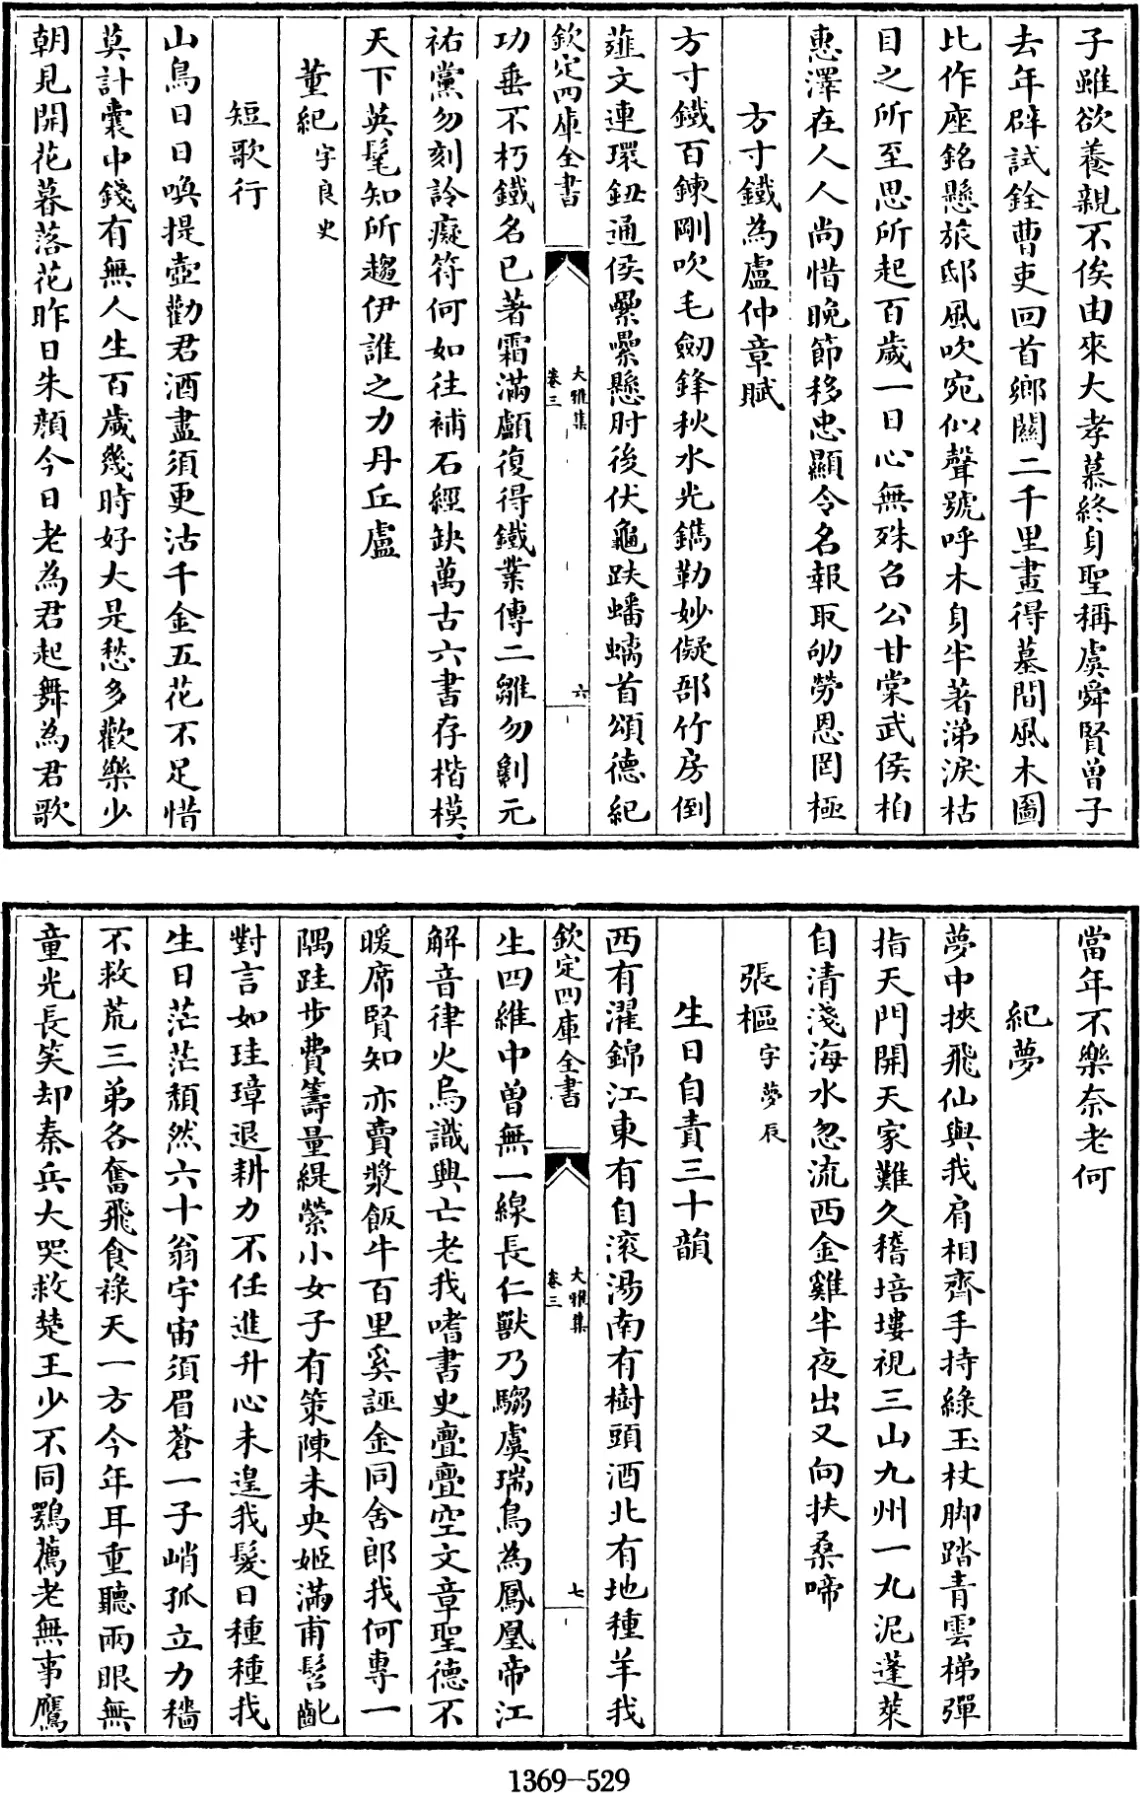 子雖欲養親不俟由來大孝慕終身聖稱虞舜賢曾子
去年辟試銓曹吏回首鄉關二千里畫得墓間風木圖
比作座銘懸旅邸風吹宛似聲號呼木身半著涕淚枯
目之所至思所起百歲一日心無殊召公甘棠武侯柏
惠澤在人人尚惜晚節移忠顯令名報取劬勞恩罔極
方寸鐵為盧仲章賦
方寸鐵百鍊剛吹毛劒鋒秋水光鐫勒妙儗部竹房倒
薤文連環鈕通侯纍纍懸肘後伏龜趺蟠螭首頌德紀
欽定四庫全書
大雅集
卷三
六
功垂不朽鐵名已著霜滿顱復得鐵業傳二雛勿劖元
祐黨勿刻詅癡符何如往補石經缺萬古六書存楷模
天下英髦知所趨伊誰之力丹丘盧
董紀字良史
短歌行
山鳥日日喚提壺勸君酒盡須更沽千金五花不足惜
莫計囊中錢有無人生百歲幾時好大是愁多歡樂少
朝見開花暮落花昨日朱顔今日老為君起舞為君歌
當年不樂奈老何
紀夢
夢中挾飛仙與我肩相齊手持綠玉杖脚踏青雲梯彈
指天門開天家難久稽培塿視三山九州一丸泥蓬萊
自清淺海水忽流西金雞半夜出又向扶桑啼
張樞字夢辰
生日自責三十韻
西有濯錦江東有自滾湯南有樹頭酒北有地種羊我
欽定四庫全書
大雅集
卷三
七
生四維中曽無一線長仁獸乃騶虞瑞鳥為鳳凰帝江
解音律火烏識興亡老我嗜書史亹亹空文章聖德不
暖席賢知亦賣漿飯牛百里奚誣金同舍郎我何專一
隅跬步費籌量緹縈小女子有策陳未央姬滿甫髫齔
對言如珪璋退耕力不任進升心未遑我髮日種種我
生日茫茫頹然六十翁宇宙須眉蒼一子峭孤立力穡
不救荒三弟各奮飛食祿天一方今年耳重聽兩眼無
童光長笑却秦兵大哭救楚王少不同鶚薦老無事鷹
1369-529